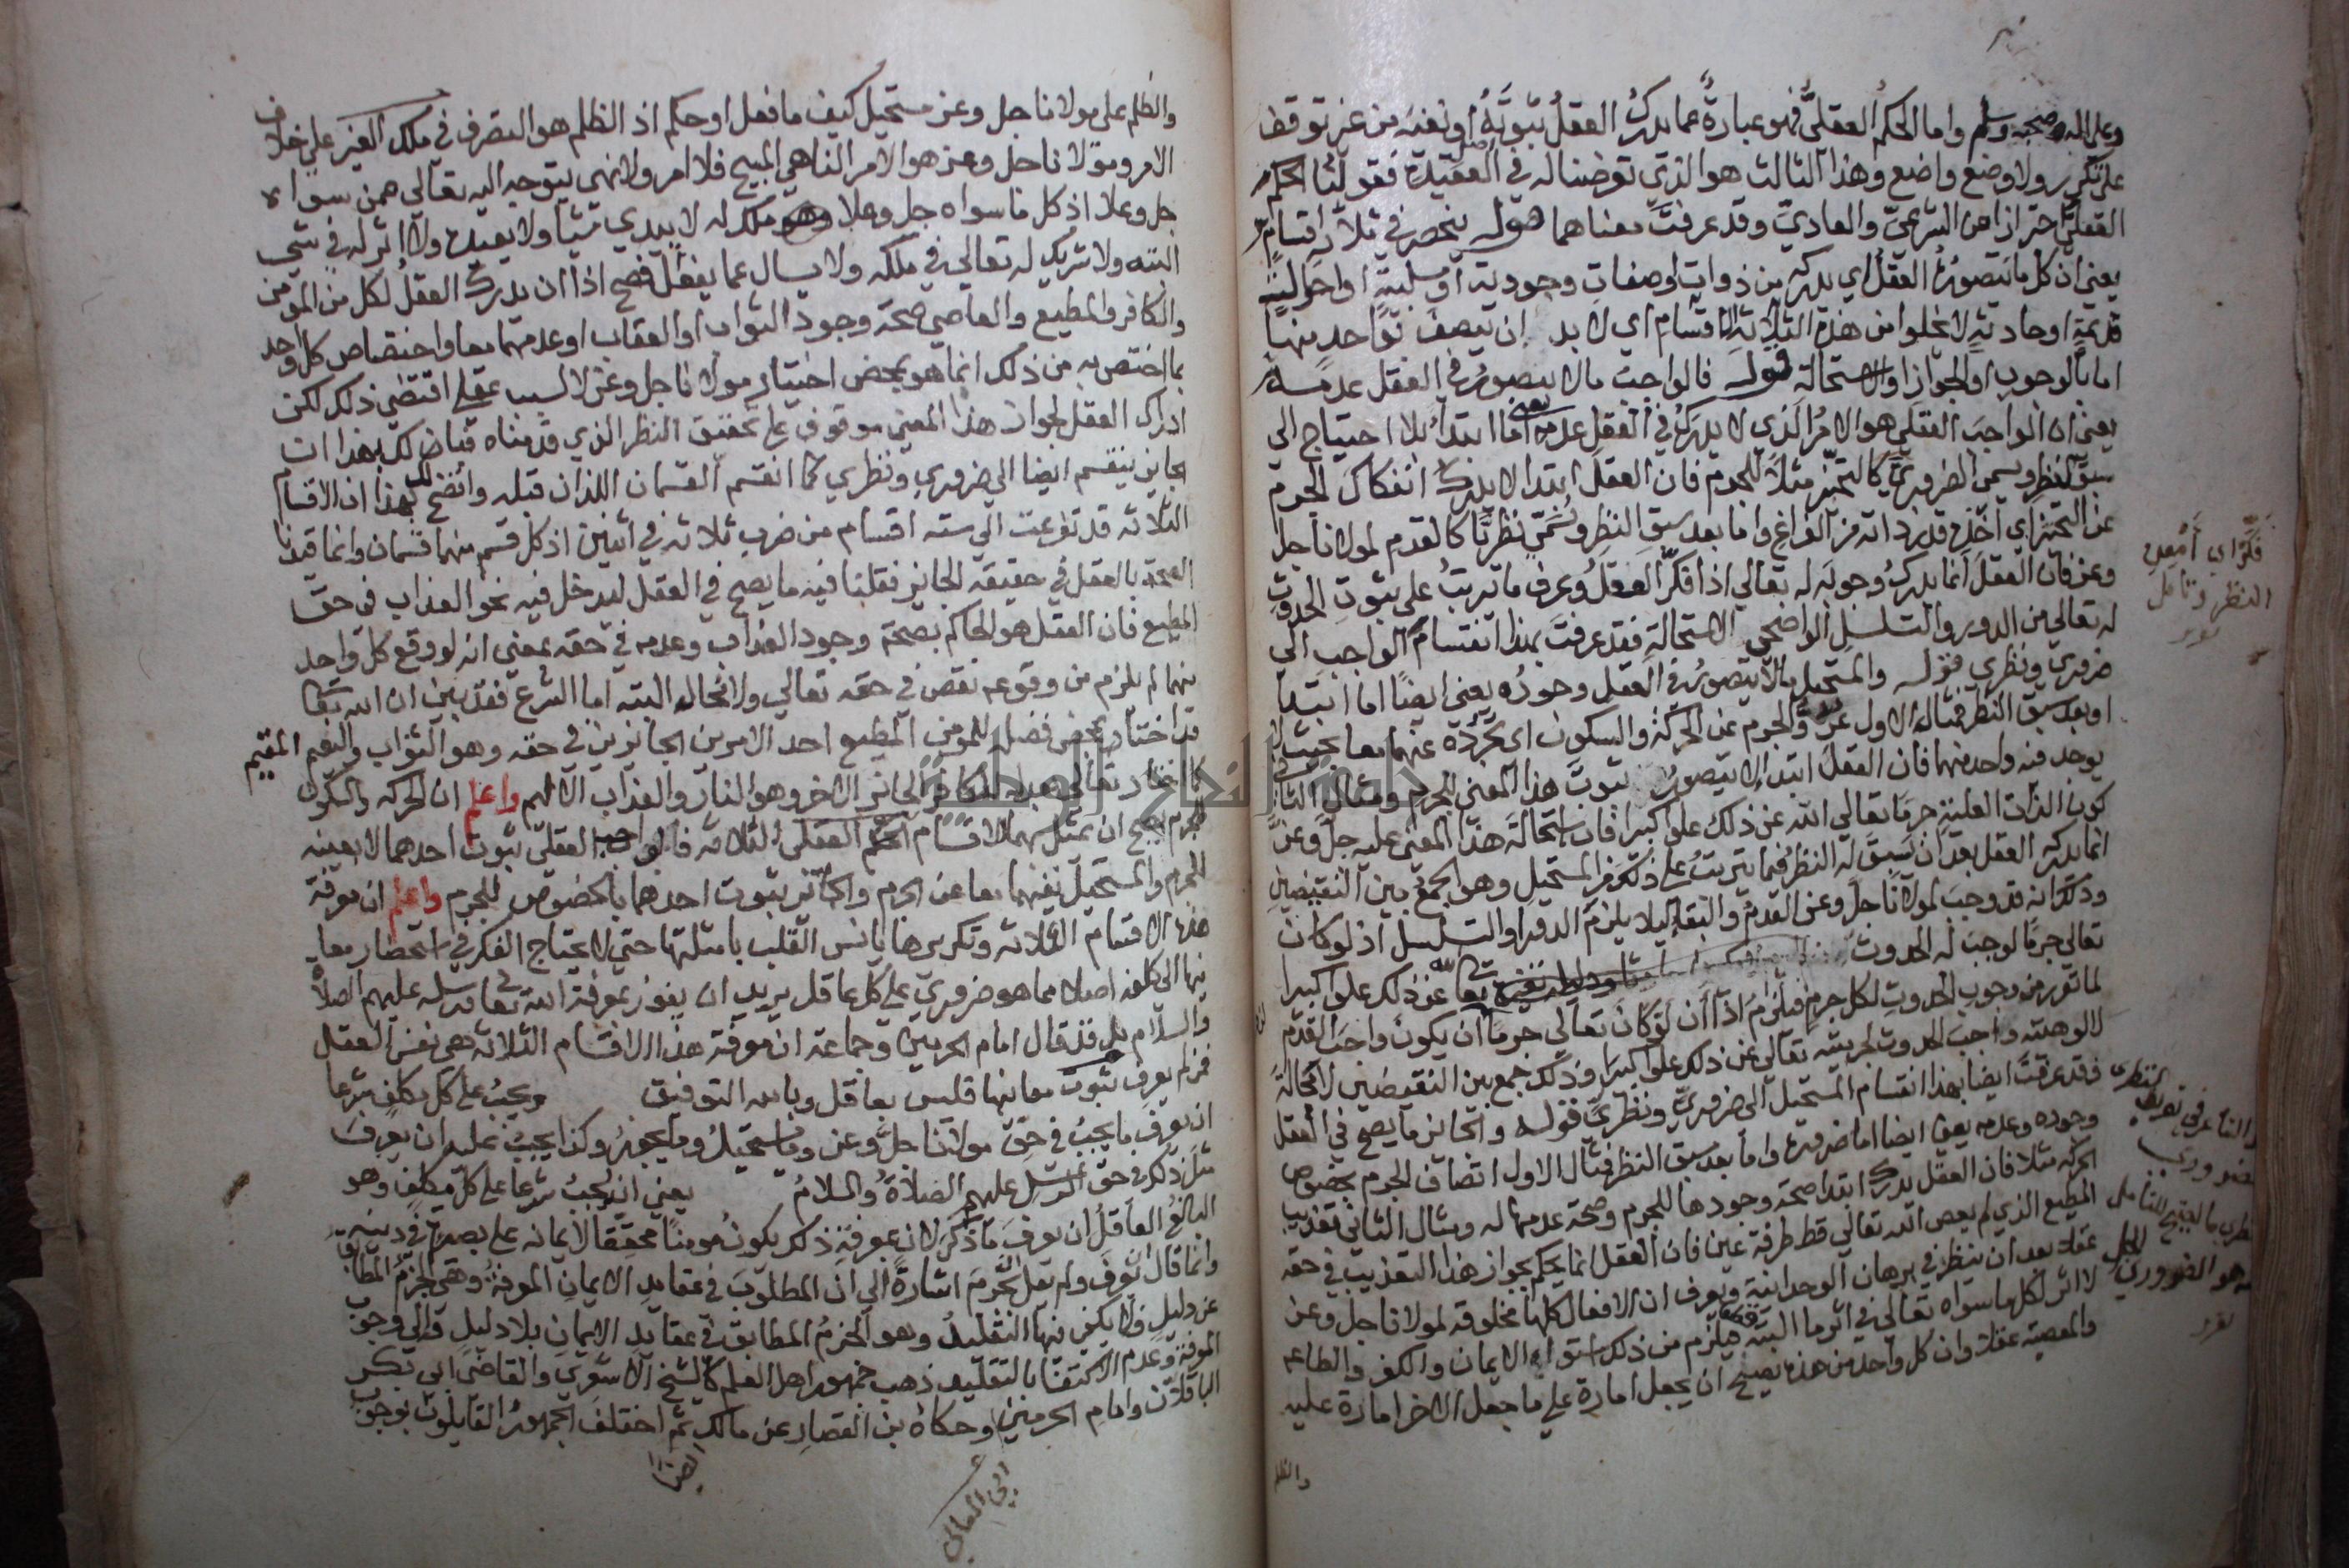 وعلى اله وصحبه وسلم واما الحكم العقلي فهو عبارة عما يدرك العقل ثبوته أو نفيه من غير توقف
على تكرر ولا وضع واضع وهذا الثالث هو الذي تعرضنا له في اصل العقيدة فقولنا الحكم
العقلي احترازا من الشرعي والعادي وقد عرفت معناهما قوله ينحصر في ثلاثة اقسام
يعني ان كل ما يتصوره العقل اي يدركه من ذوات او صفات وجودية او سلبية او احوالية
قديمة او حادثة لا يخلوا من هذه الثلاثة الاقسام اي لا بد ان يتصف بواحد منها
اما بالوجوب او الجواز او الاستحالة قوله فالواجب ما لا يتصور في العقل عدمه
يعني ان الواجب العقلي هو الامر الذي لا يدرك في العقل عدمه يعني اما ابتداء بلا احتياج الى
سبق النظر ويسمى الضروري كالتحيز مثلا للجرم فان العقل ابتدا لا يدرك انفكاك الجرم
عن التحيز اي اخذه قدر ذاته من الفراغ واما بعد سبق النظر وتسمى نظريا كالقدم لمولانا جل
وعز فان العقل انما يدرك وجوبه له تعالى اذا فكر العقل وعرف ما يترتب على ثبوت الحدوث
له تعالى من الدور والتسلسل الواضحي الاستحالة فقد عرفت بهذا انقسام الواجب الى
ضروري ونظري قوله والمستحيل ما لا يتصور في العقل وجوده يعني ايضا اما ابتدا
او بعد سبق النظر فمثال الاول عرو الجرم عن الحركة والسكون اي تجرده عنهما معا بحيث لا
يوجد فيه واحد منهما فان العقل ابتدا لا يتصور ثبوت هذا المعنى للجرم ومثال الثاني
كون الذات العلية جرما تعالى الله عن ذلك علوا كبيرا فان استحالة هذا المعنى عليه جل وعز
انما يدركه العقل بعد ان يسبق له النظر فيما يترتب على ذلك من المستحيل وهو الجمع بين النقيضين
وذلك انه قد وجب لمولانا جل وعز القدم والبقا ليلا يلزم الدور او التسلسل اذ لو كان
تعالى جرما لوجب له الحدوث تعالى الله عن ذلك علوا كبيرا
لما تقرر من وجوب الحدوث لكل جرم فيلزم اذا أن لو كان تعالى جرما أن يكون واجب القدم
لالوهيته واجب الحدوث لجرميته تعالى عن ذلك علوا كبيرا وذلك جمع بين النقيضين لا محالة
فقد عرفت ايضا بهذا انقسام المستحيل الى ضروري ونظري قوله والجايز ما يصح في العقل
وجوده وعدمه يعني ايضا اما ضرورة واما بعد سبق النظر فمثال الاول اتصاف الجرم بخصوص
الحركة مثلا فان العقل يدرك ابتدا صحة وجودها للجرم وصحة عدمها له ومثال الثاني تعذيب
المطيع الذي لم يعص الله تعالى قط طرفة عين فان العقل انما يحكم بجواز هذا التعذيب في حقه
عقلا بعد ان ينظر في برهان الوحدانية ويعرف ان الافعال كلها مخلوقة لمولانا جل وعز
لا اثر لكل ما سواه تعالى في اثر ما البتة فيلزم من ذلك استواء الايمان والكفر والطاعة
والمعصية عقلا وان كل واحد من هذه يصلح ان يجعل امارة على ما جعل الاخر امارة عليه
والظلم
فكر اي أمعن
النظر وتأمل
والظلم على مولانا جل وعز مستحيل كيف ما فعل او حكم اذ الظلم هو التصرف في ملك الغير على خلاف
الامر ومولانا جل وعز هو الامر الناهي المبيح فلا امر ولا نهي يتوجه اليه تعالى ممن سواه
جل وعلا اذ كل ما سواه جل وعلا وهو ملك له لا يبدي شيئا ولا يعيده ولا اثر له في شي
البته ولا شريك له تعالى في ملكه ولا يسال عما يفعل فصح اذا ان يدرك العقل لكل من المومن
والكافر والمطيع والعاصي صحة وجود الثواب او العقاب او عدمهما معا واختصاص كل واحد
بما اختص به من ذلك انما هو بمحض اختيار مولانا جل وعز لا لسبب عقلي اقتضى ذلك لكن
ادراك العقل لجواز هذا المعنى موقوف على تحقيق النظر الذي قدمناه فبان لك بهذا ان
الجايز ينقسم ايضا الى ضروري ونظري كما انقسم القسمان اللذان قبله واتضح لك بهذا ان الاقسام
الثلاثه قد تفرعت الى سته اقسام من ضرب ثلاثه في اثنين اذ كل قسم منها قسمان وانما قيدنا
الصحة بالعقل في حقيقة الجايز فقلنا فيه ما يصح في العقل ليدخل فيه نحو العذاب في حق
المطيع فان العقل هو الحاكم بصحة وجود العذاب وعدمه في حقه بمعنى انه لو وقع كل واحد
منهما لم يلزم من وقوعه نقص في حقه تعالى ولا محال البته اما الشرع فقد بين ان الله تعالى
قد اختار بمحض فضله للمومن المطيع احد الامرين الجايزين في حقه وهو الثواب والنعيم المقيم
كما اختار تعالى بعدله للكافر الجايز الاخر وهو النار والعذاب الاليم واعلم ان الحركه والسكون
للجرم يصح ان يمثل بهما لاقسام الحكم العقلي الثلاثة فالواجب العقلي ثبوت احدهما لا بعينه
للجرم والمستحيل نفيهما معا عن الجرم والجائز ثبوت احدهما بالخصوص للجرم واعلم ان معرفة
هذه الاقسام الثلاثه وتكريرها تانيس القلب بامثلتها حتى لا يحتاج الفكر في استحضار معا
نيها الى كلفه اصلا مما هو ضروري على كل عاقل يريد ان يفوز بمعرفة الله تعالى ورسله عليهم الصلاة
والسلام بل قد قال امام الحرمين وجماعة ان معرفة هذه الاقسام الثلاثه هي نفس العقل
فمن لم يعرف ثبوت معانيها فليس بعاقل وبالله التوفيق ويجب على كل مكلف شرعا
ان يعرف ما يجب في حق مولانا جل وعز وما يستحيل وما يجوز وكذا يجب عليه ان يعرف
مثل ذلك في حق الرسل عليهم الصلاة والسلام يعني انه يجب شرعا على كل مكلف وهو
البالغ العاقل ان يعرف ما ذكر لان بمعرفة ذلك يكون مومنا محققا لايمانه على بصيرة في دينه
وانما قال يعرف ولم يقل يجزم اشارة الى ان المطلوب في عقايد الايمان المعرفة وهي الجزم المطابق
عن دليل ولا يكفي فيها التقليد وهو الجزم المطابق في عقايد الايمان بلا دليل والى وجوب
المعرفة وعدم الاكتفا بالتقليد ذهب جمهور اهل العلم كالشيخ الاشعري والقاضي ابي بكر
الباقلاني وامام الحرمين وحكاه بن القصار عن مالك ثم اختلف الجمهور القايلون بوجوب
ايضا
ابي المعالي